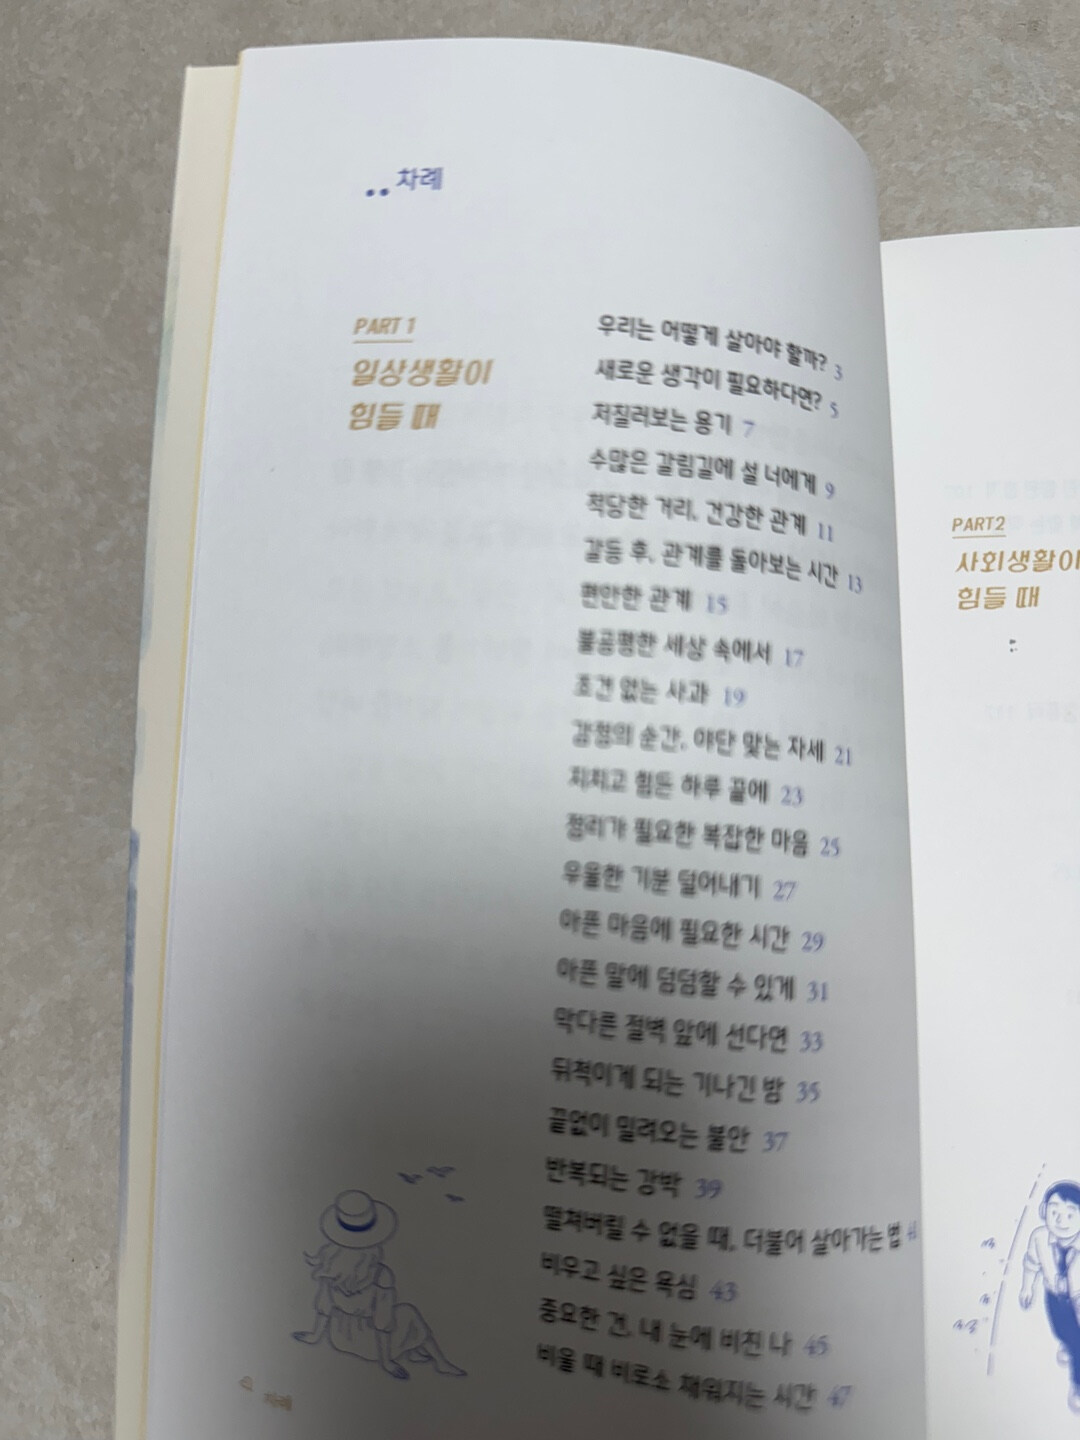 차례
PART 1
일상생활이
힘들 때
우리는 어떻게 살아야 할까? 3
새로운 생각이 필요하다면? 5
저질러보는 용기 7
수많은 갈림길에 설 너에게 9
적당한 거리, 건강한 관계 11
갈등 후, 관계를 돌아보는 시간 13
편안한 관계 15
불공평한 세상 속에서 17
조건 없는 사과 19
감정의 순간, 야단 맞는 자세 21
지치고 힘든 하루 끝에 23
정리가 필요한 복잡한 마음 25
우울한 기분 덜어내기 27
아픈 마음에 필요한 시간 29
아픈 말에 덤덤할 수 있게 31
막다른 절벽 앞에 선다면 33
뒤척이게 되는 기나긴 밤 35
끝없이 밀려오는 불안 37
반복되는 강박 39
떨쳐버릴 수 없을 때, 더불어 살아가는 법
비우고 싶은 욕심 43
중요한 건, 내 눈에 비친 나 45
비울 때 비로소 채워지는 시간 47
차례
PART2
사회생활이
힘들 때